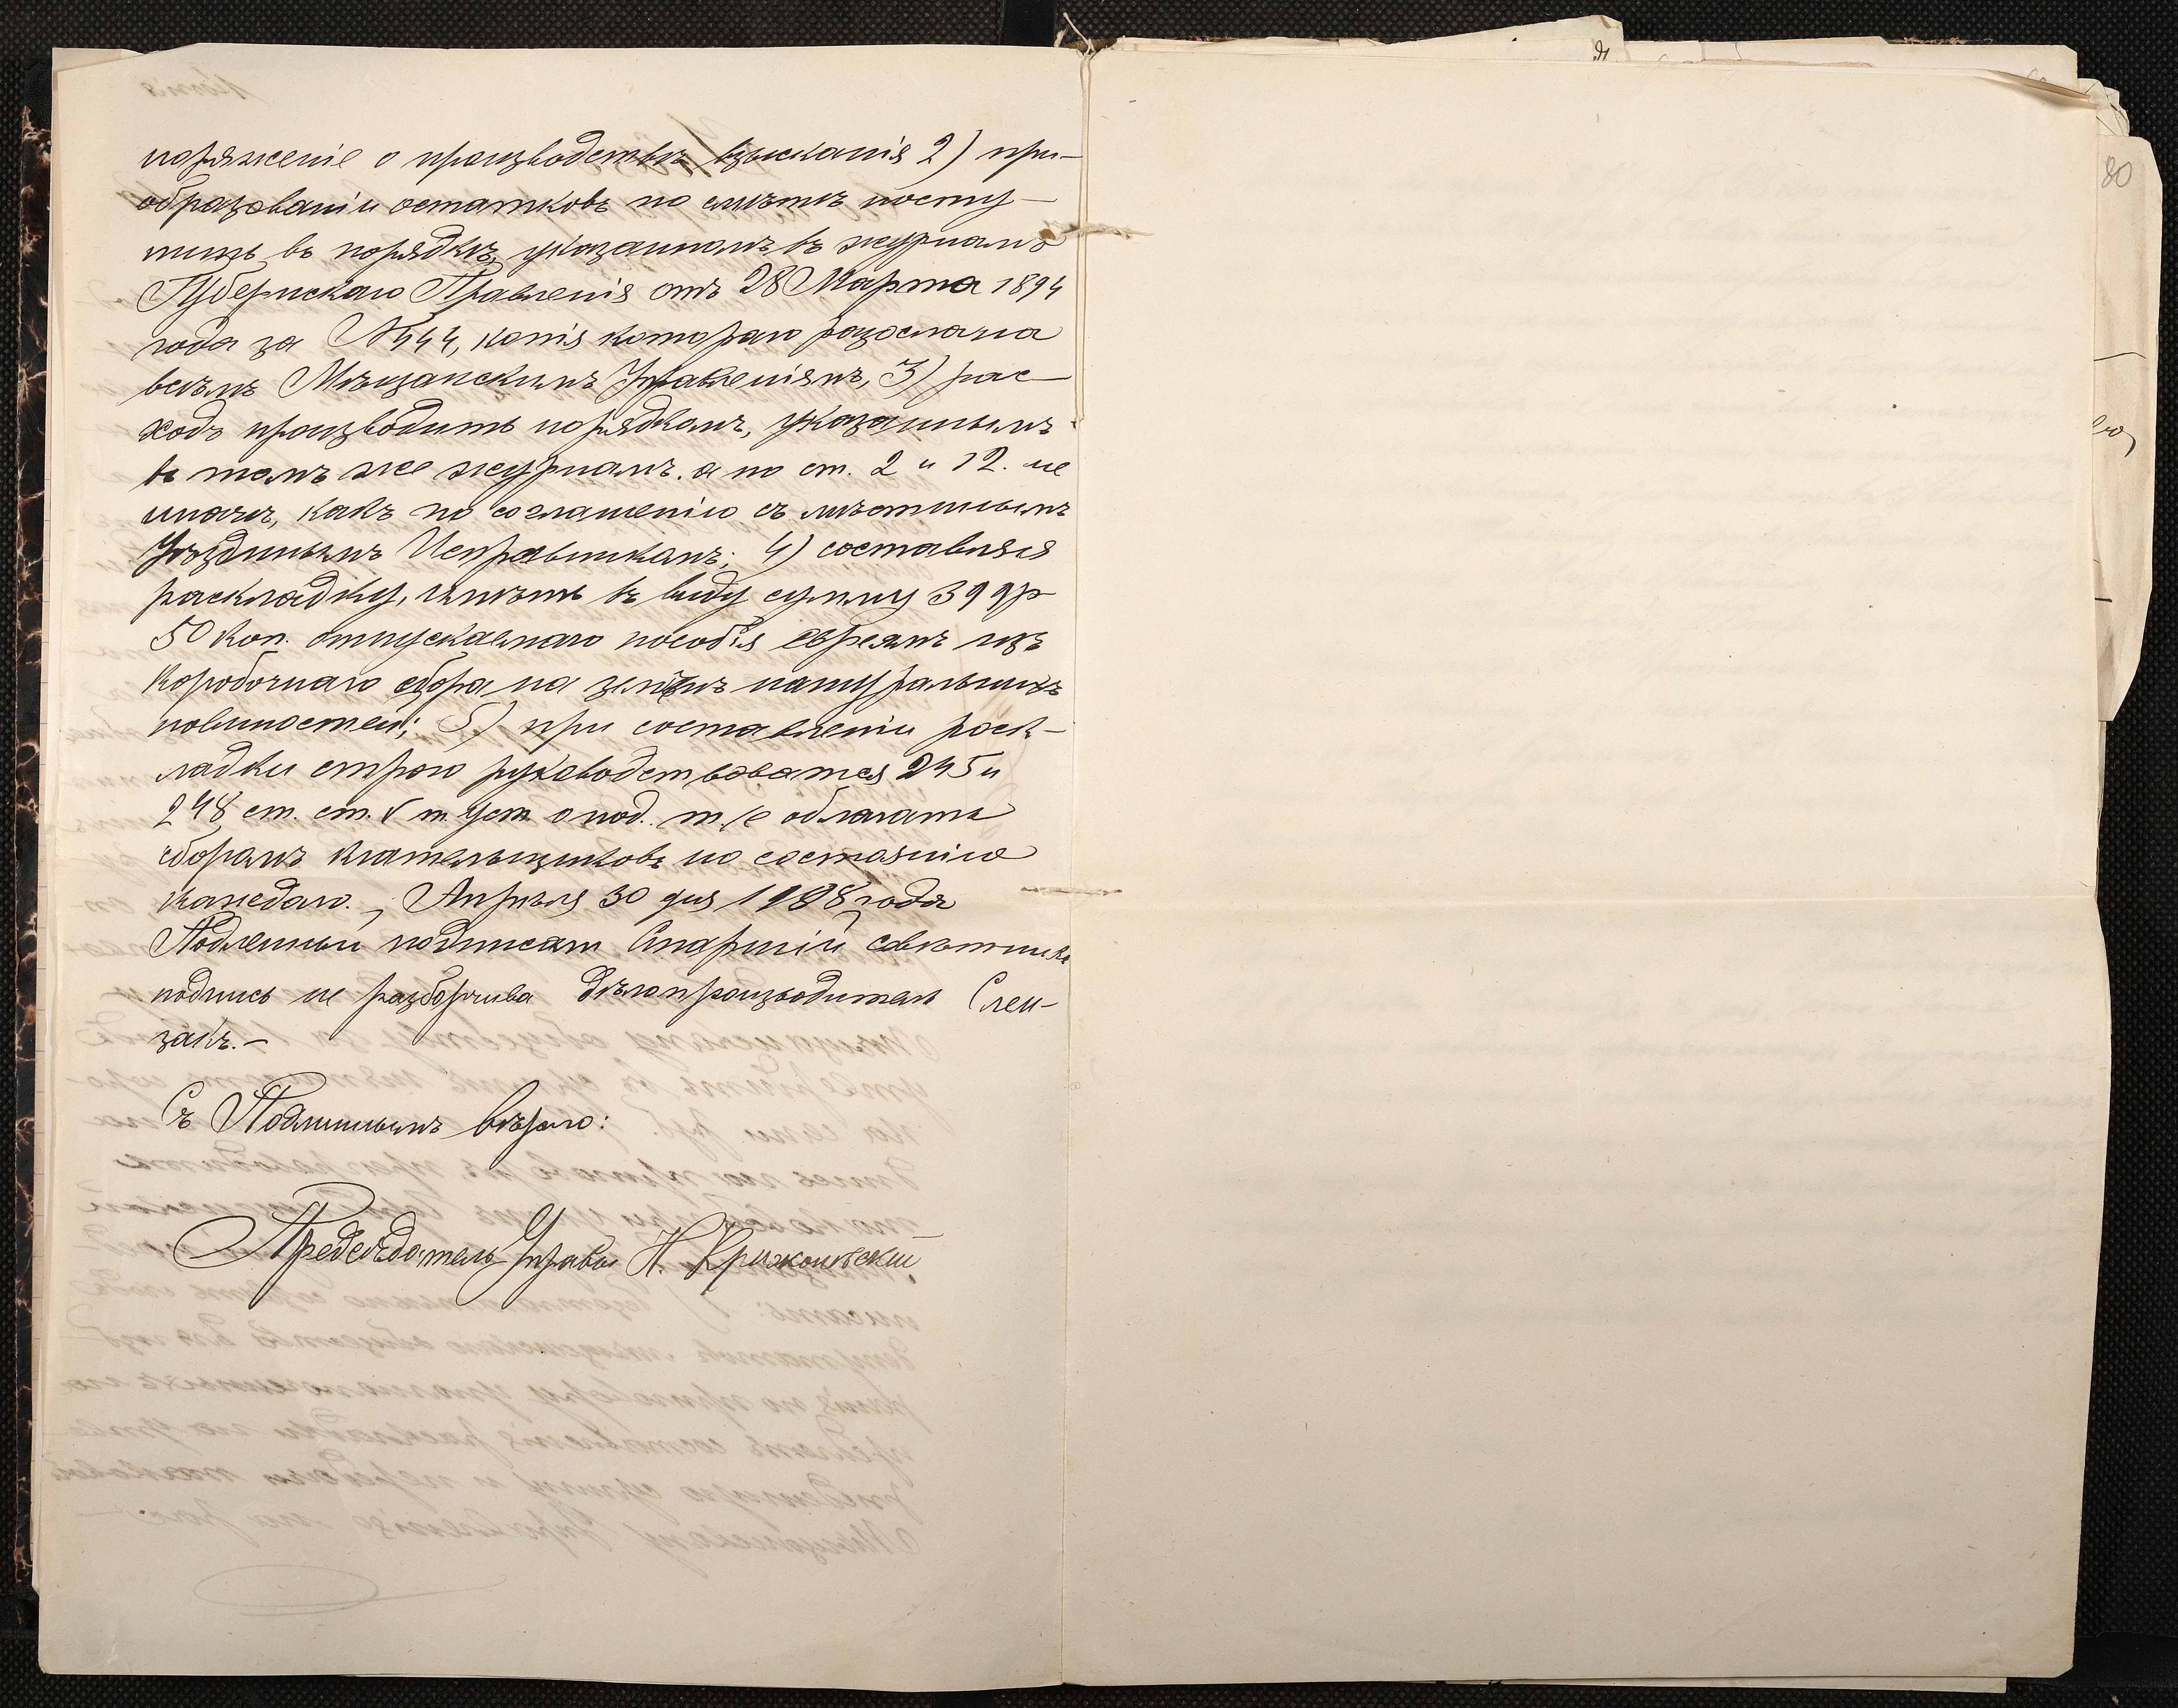 поряженіе о производствѣ взысканія 2) при-
образованіи остатковъ по смѣтѣ посту-
пить въ порядкѣ, указанномъ въ журналѣ
Губернскаго Правленія отъ 28 Марта 1894
года за №444, копія котораго разослана
всѣмъ Мѣщанскимъ Управленіямъ, 3) рас-
ходъ производить порядкомъ, указаннымъ
въ томъ же журналѣ. а по ст. 2 и 12. не
иначе, какъ по соглашенію съ мѣстнымъ
Уѣзднымъ Исправникомъ; 4) составляя
раскладку, имѣть въ виду сумму 399р
50 коп. отпускаемаго пособія евреямъ изъ
коробочнаго сбора на натуральныхъ
повиностей; 5) при составленіи раск-
ладки строго руководствоватся 245 и
248 ст. ст. V т. уст. о под. т. е облагать
сборамъ плательщиковъ по состоянію
каждаго. Апрѣля 30 дня 1898 года
Подленный подписали Старшій совѣтникъ
подпись не разборчива Дѣлопроизводитель Слен-
закъ.-
Съ Подлиннымъ вѣрно:
Предсѣдатель Управы Н. Крижановскій
80